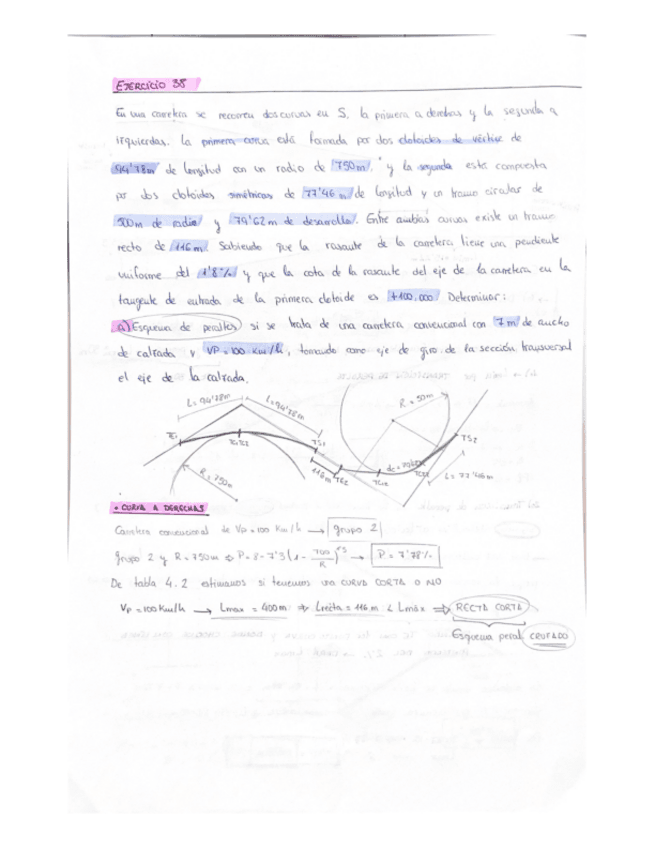 EJERCICIO 38
En una carretera se recorren dos curvas en S, la primera a derechas y la segunda a
izquierdas. La primera curva está formada por dos clotoides de vértice de
94'78m de longitud con un radio de 750m. y la segunda está compuesta
por dos clotoides simétricas de 77'46 m de longitud y un tramo circular de
500m de radio y 79'62m de desarrollo. Entre ambas curvas existe un tramo
recto de 116m. Sabiendo que la rasante de la carretera tiene una pendiente
uniforme del 1'8% y que la cota de la rasante del eje de la carretera en la
tangente de entrada de la primera clotoide es +100.000 Determinar:
a) Esquema de peraltes si se trata de una carretera convencional con 7m de ancho
de calzada y VP=100 Km/h, tomando como eje de giro de la sección transversal
el eje de la calzada.
L=94'78m
L=94'78m
R=50m
TE1
TC1TC2
TS1
TS2
R=750m
116m
TE2
TC12
L=77'46m
• CURVA A DERECHAS
Carretera convencional de VP=100 Km/h → grupo 2
grupo 2 y R=750m ⇒ P=8-7'3(1-700/R)^1'3 → P=7'78%
De tabla 4.2 estimamos si tenemos una CURVA CORTA O NO
VP=100Km/h → Lmax=400m ⇒ Lrecta=116m < Lmáx ⇒ RECTA CORTA
Esquema peral. CRUZADO